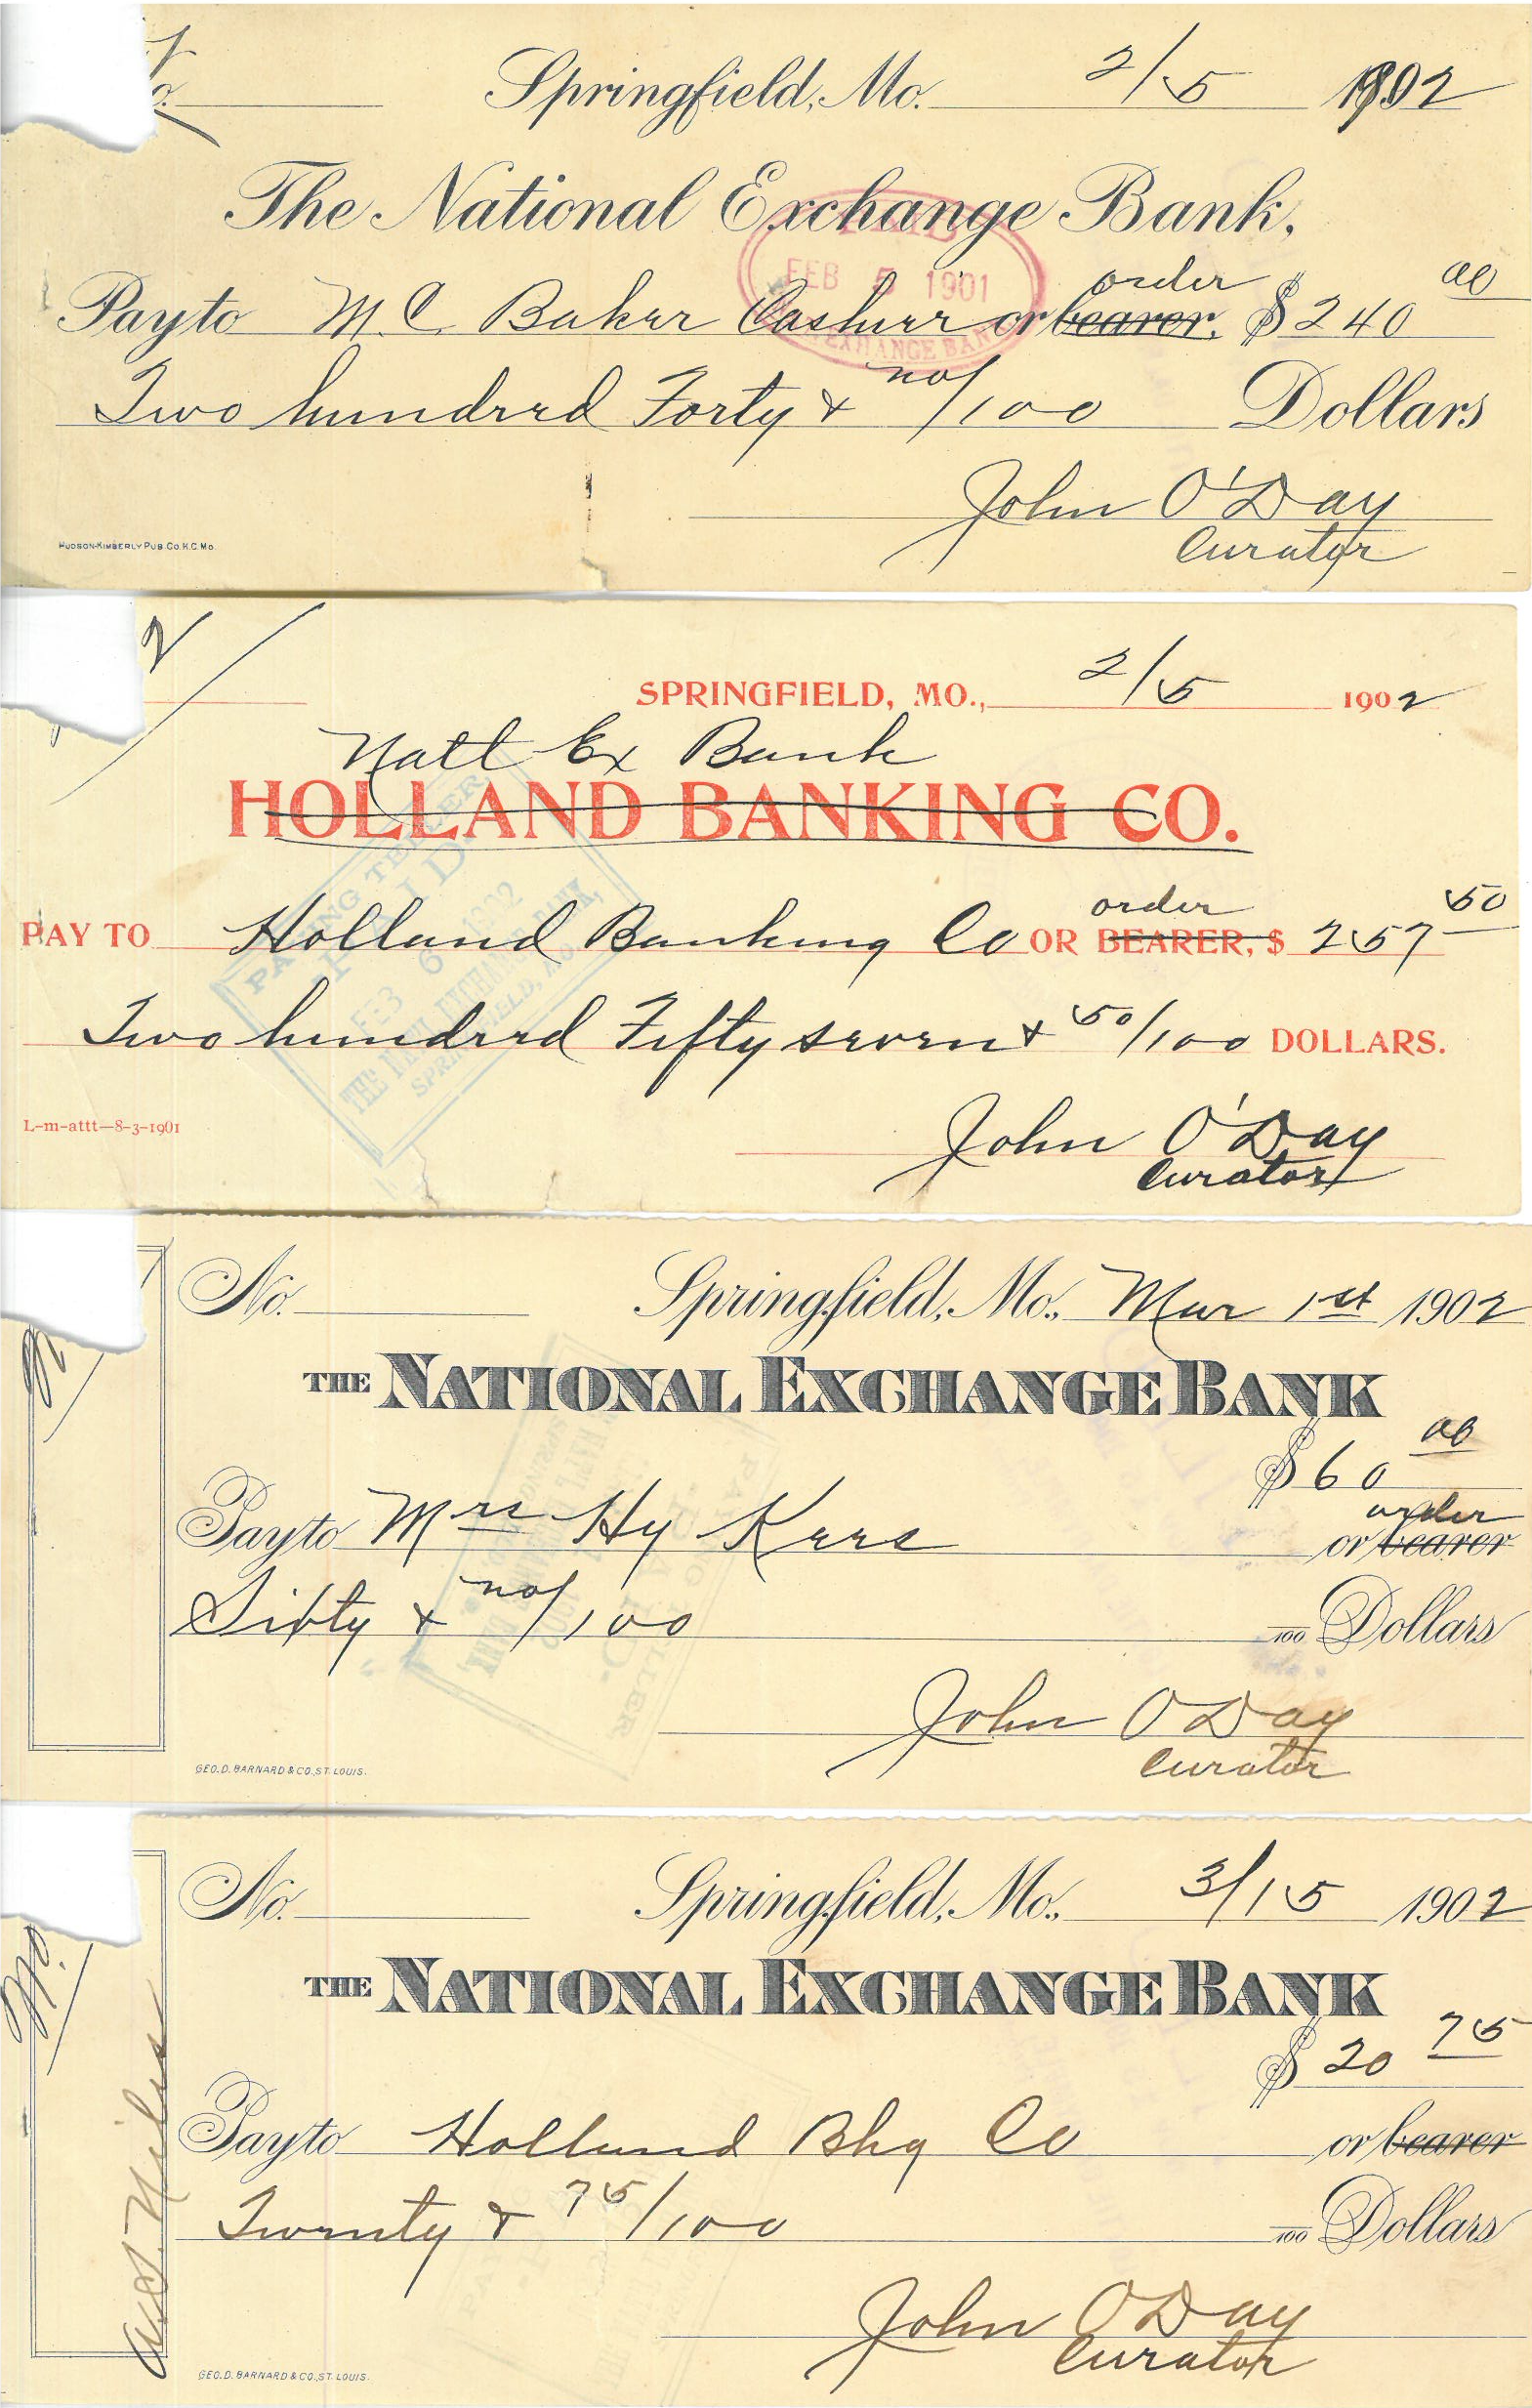 No. Springfield, Mo. 2/5 1902
The National Exchange Bank,
PAID
FEB 5 1901
EXCHANGE BANK
order
Pay to M C Baker Cashier or bearer. $ 240 00
Two hundred Forty & no/100 Dollars
John O'Day
Curator
HUDSON-KIMBERLY PUB. CO. K.C. MO.
2
SPRINGFIELD, MO., 2/5 1902
Natl Ex Bank
HOLLAND BANKING CO.
order
PAY TO Holland Banking Co OR BEARER, $ 257 50
PAYING TELLER
PAID
FEB 6 1902
THE NATL EXCHANGE BANK,
SPRINGFIELD, MO.
Two hundred Fifty seven & 50/100 DOLLARS.
L-m-attt—8-3-1901
John O'Day
Curator
No. Springfield, Mo., Mar 1st 1902
THE NATIONAL EXCHANGE BANK
$ 60 00
order
Pay to Mrs Hy Kers or bearer
Sixty & no/100 100 Dollars
John O Day
Curator
GEO. D. BARNARD & CO., ST. LOUIS.
No. Springfield, Mo., 3/15 1902
THE NATIONAL EXCHANGE BANK
$ 20 75
Pay to Holland Bkg Co or bearer
Twenty & 75/100 100 Dollars
John O Day
Curator
GEO. D. BARNARD & CO., ST. LOUIS.